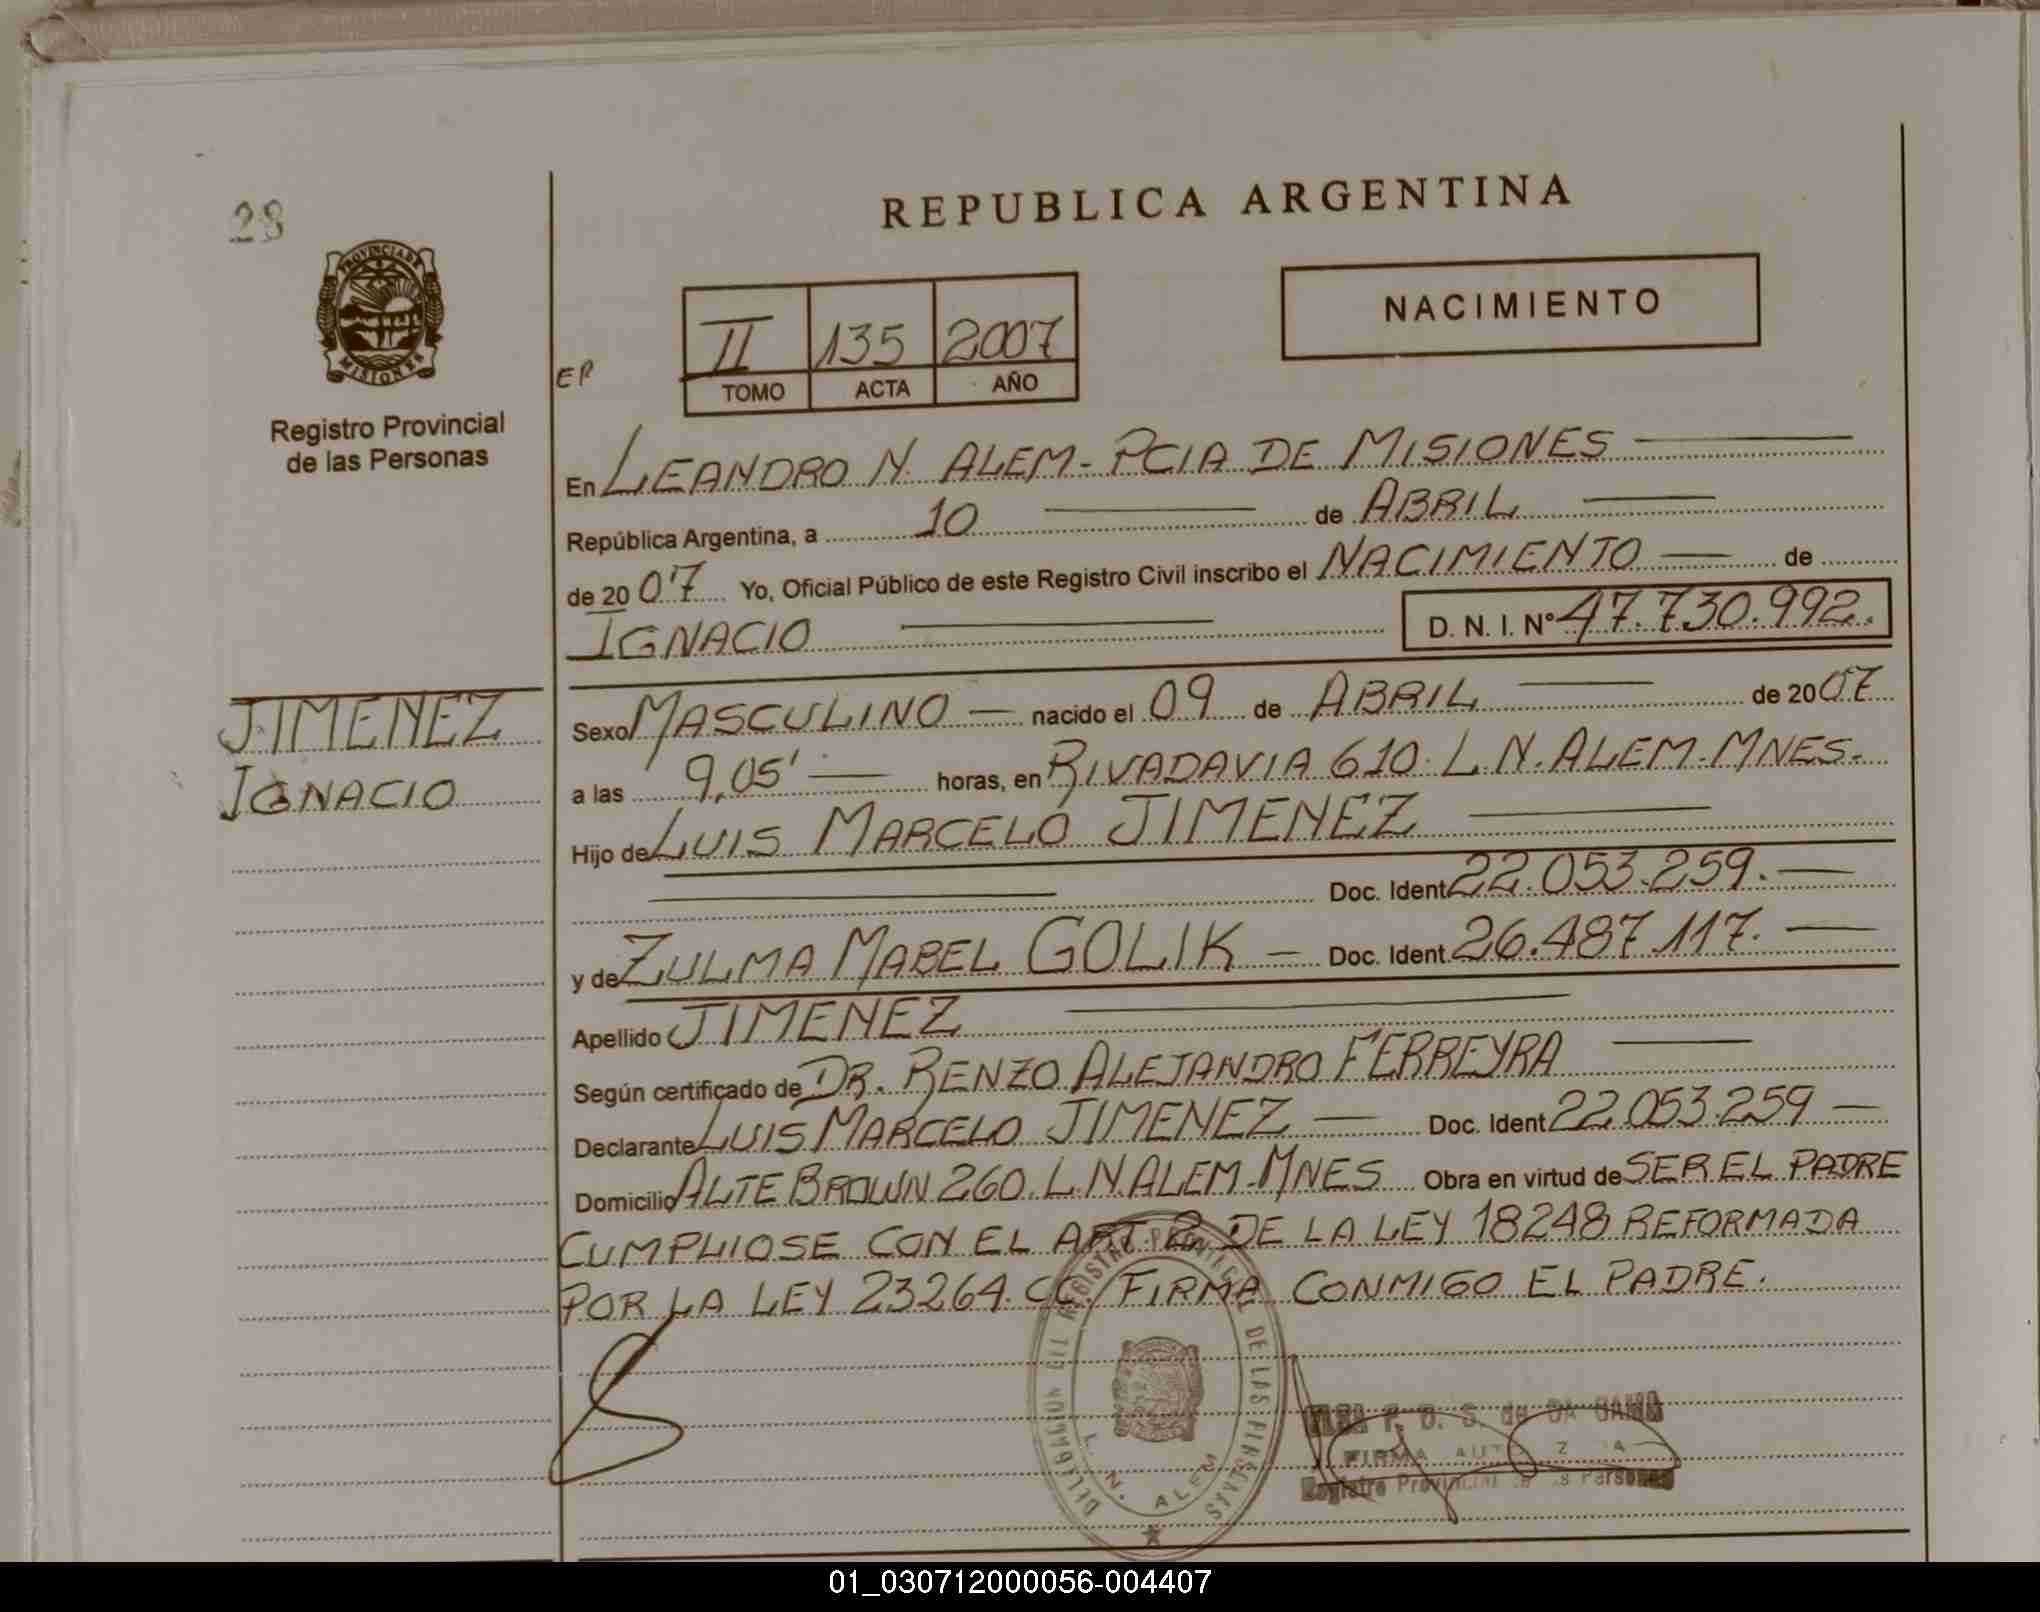 REPUBLICA ARGENTINA
28
PROVINCIA DE
MISIONES
Registro Provincial
de las Personas
NACIMIENTO
II 135 2007
TOMO ACTA AÑO
ER
En LEANDRO N. ALEM - PCIA DE MISIONES
República Argentina, a 10 de ABRIL
de 2007 Yo, Oficial Público de este Registro Civil inscribo el NACIMIENTO de
IGNACIO D. N. I. N° 47.730.992.
JIMENEZ
IGNACIO
Sexo MASCULINO nacido el 09 de ABRIL de 2007
a las 9,05' horas, en RIVADAVIA 610. L.N. ALEM. MNES.
Hijo de LUIS MARCELO JIMENEZ
Doc. Ident 22.053.259.
y de ZULMA MABEL GOLIK Doc. Ident. 26.487.117.
Apellido JIMENEZ
Según certificado de DR. RENZO ALEJANDRO FERREYRA
Declarante LUIS MARCELO JIMENEZ Doc. Ident 22.053.259
Domicilio ALTE BROWN 260. L.N. ALEM. MNES Obra en virtud de SER EL PADRE
CUMPLIOSE CON EL ART. 2 DE LA LEY 18248 REFORMADA
POR LA LEY 23264. CC./ FIRMA CONMIGO EL PADRE.
DELEGACION DEL REGISTRO PROVINCIAL DE LAS PERSONAS
L. N. ALEM
F. B. S. de DA GAMA
FIRMA
Registro Provincial Personas
01_030712000056-004407